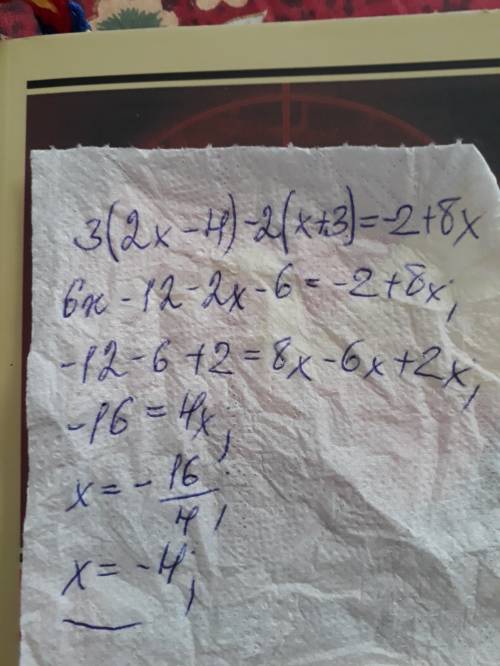 3(2x-4)-2(x+3)=-2+8x
6x-12-2x-6=-2+8x;
-12-6+2=8x-6x+2x;
-16=4x;
x=-16/4;
x=-4;